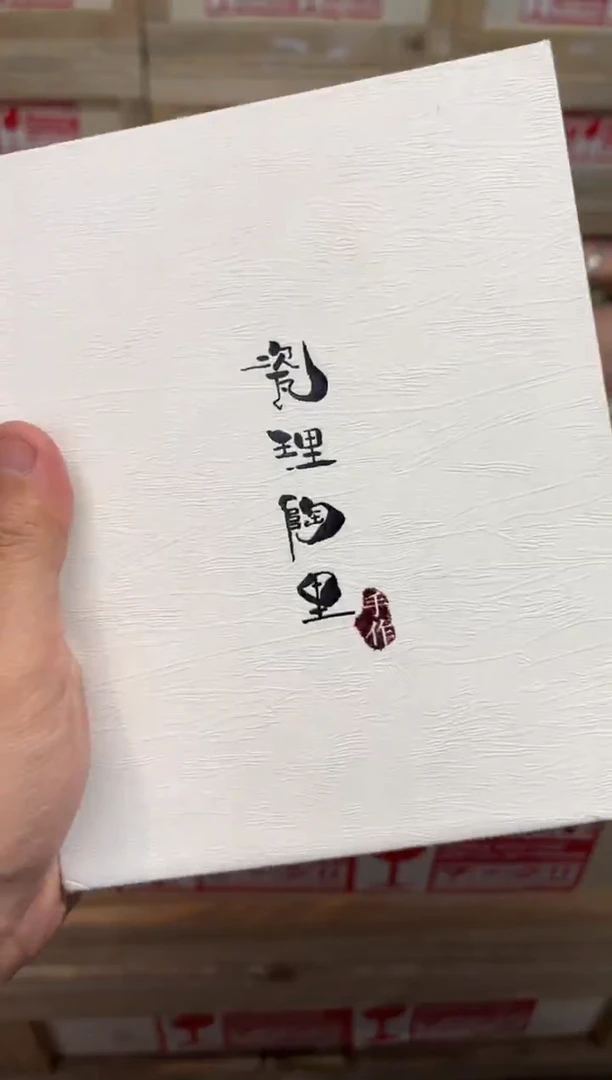 瓷理陶里
手作